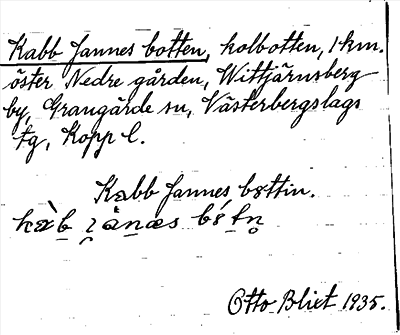 Kabb Jannes botten, kolbotten, 1 km.
öster Nedre gården, Wittjärnsberg
by, Grangärde sn, Västerbergslags
tg, Kopp l.
Kabb Jannes bøttin.
Otto Blixt 1935.